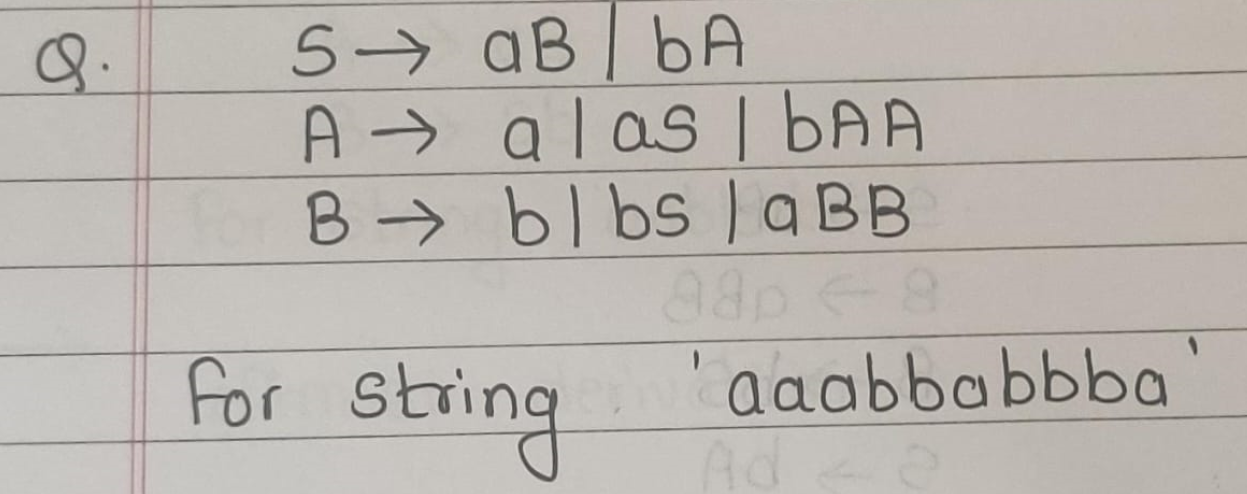 Q. S → aB | bA
A → a | as | bAA
B → b | bs | aBB
For string 'aaabbabbba'